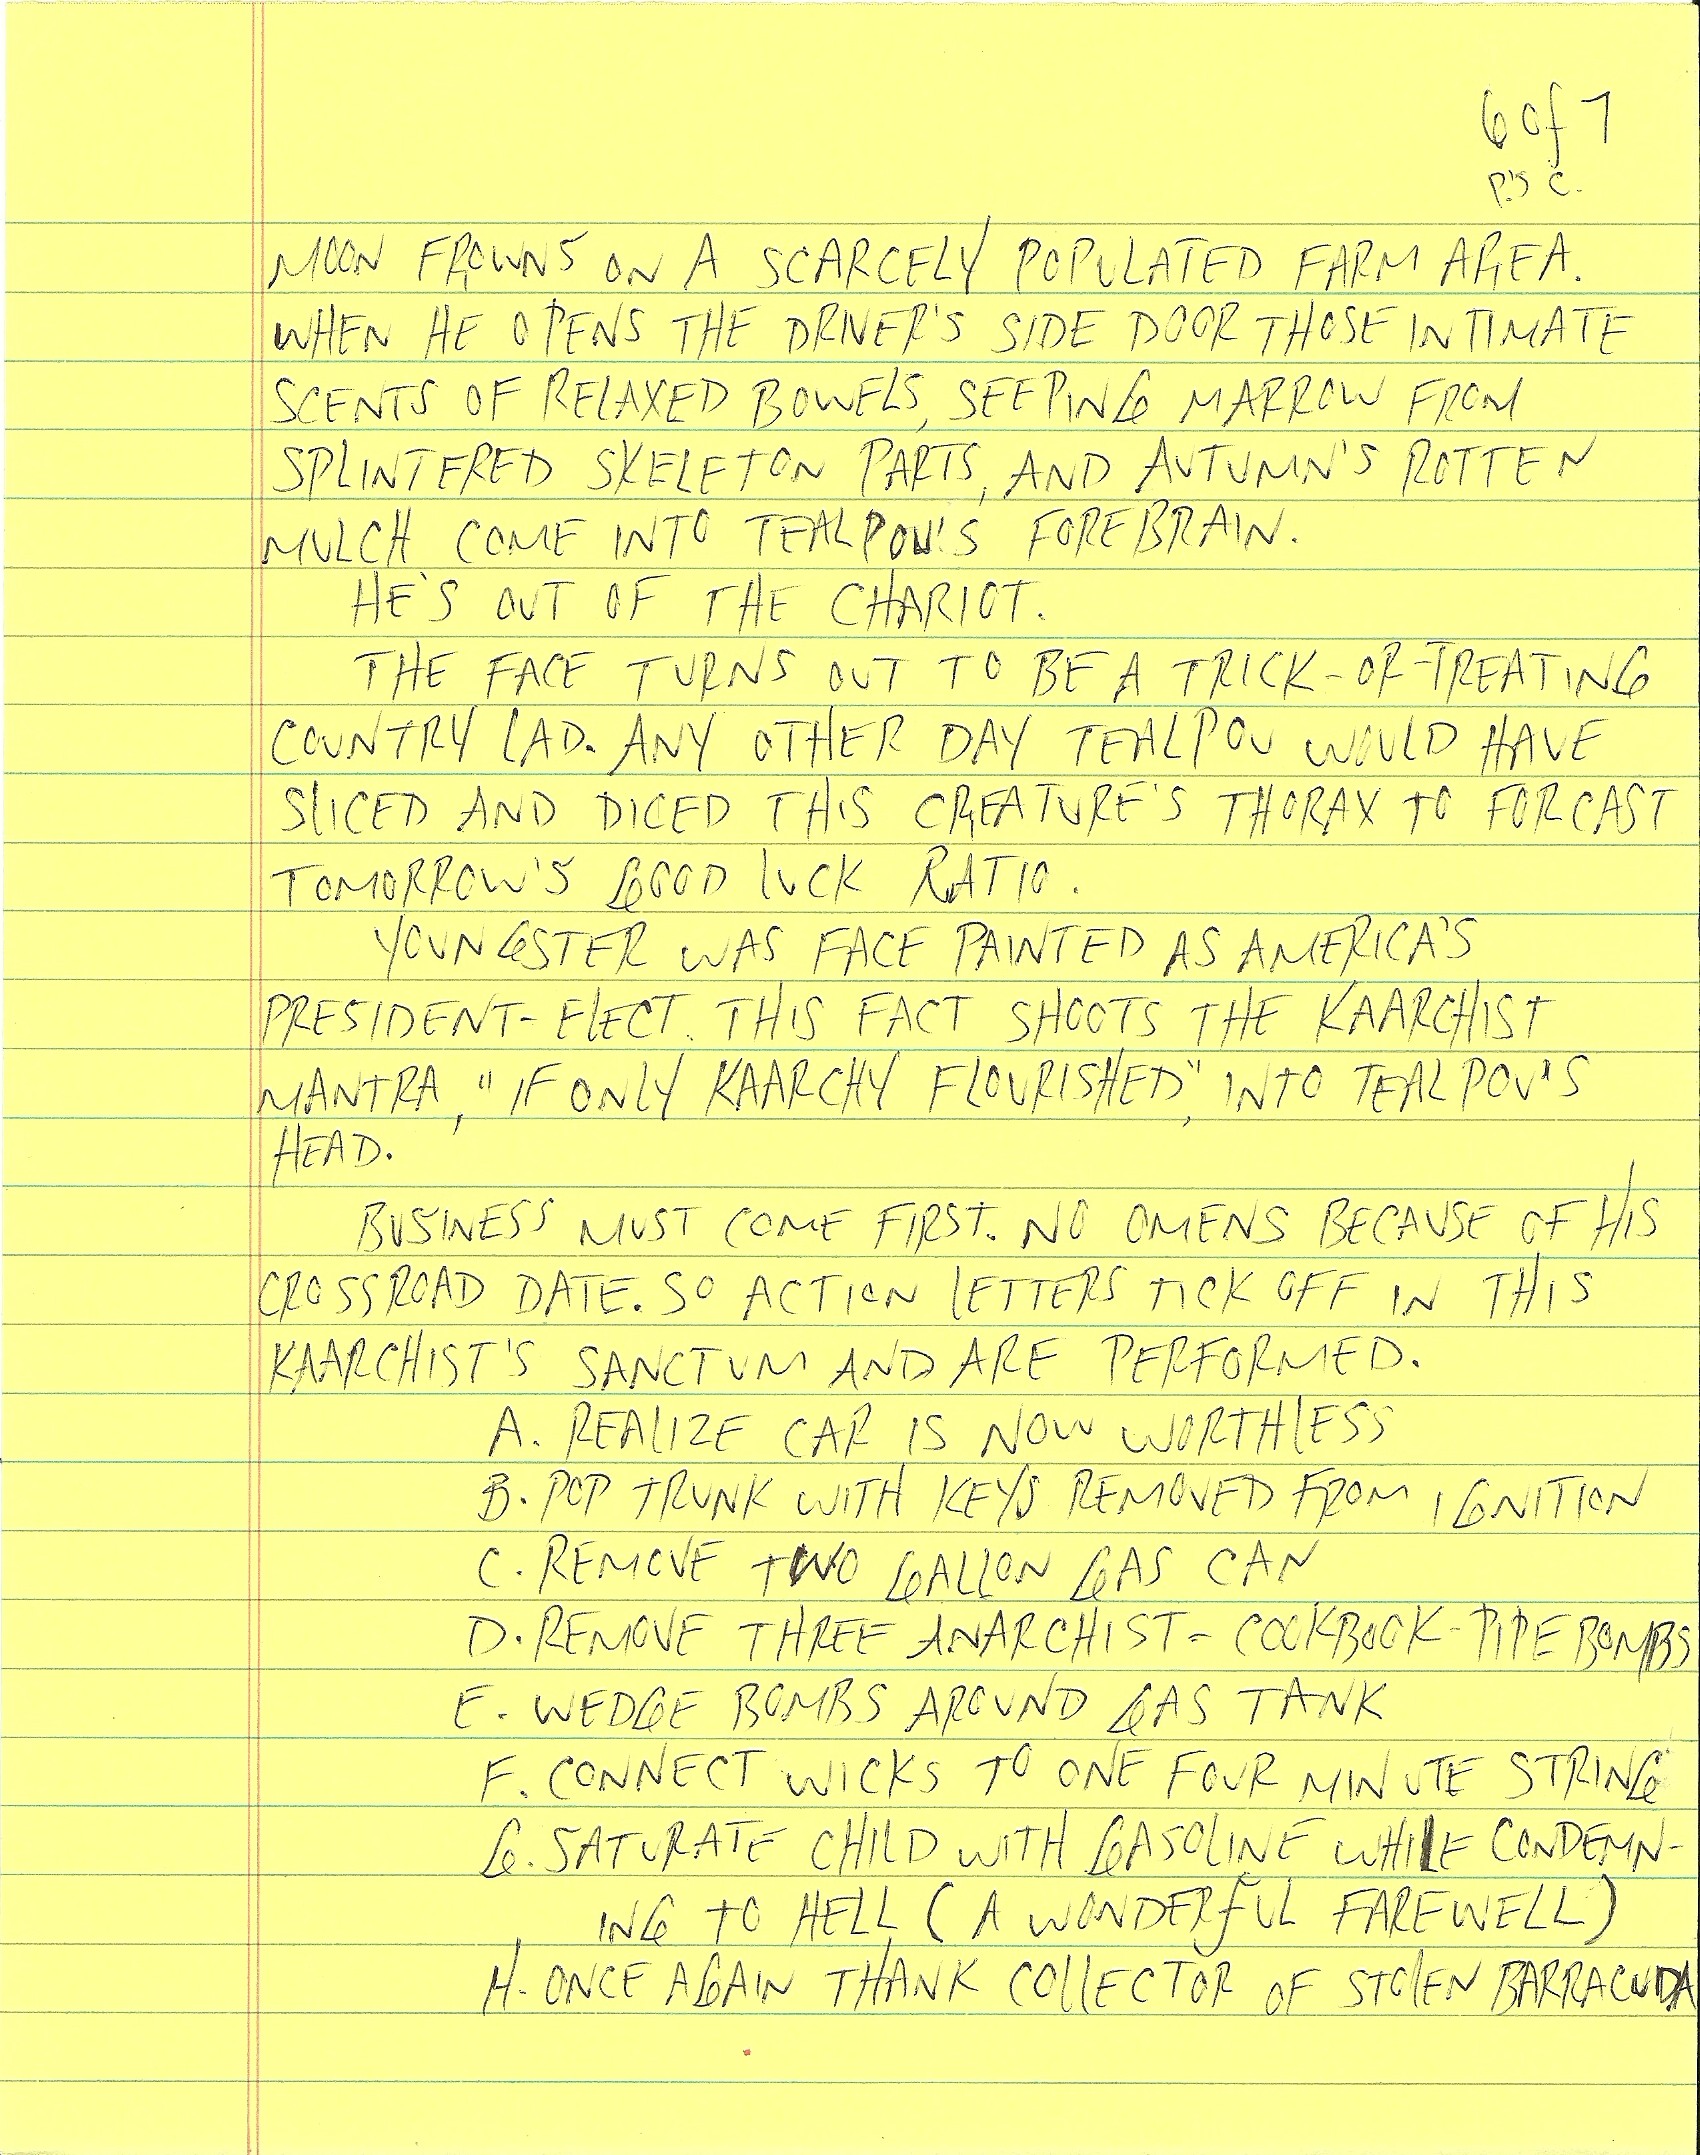 6 of 7
P.S C.
MOON FROWNS ON A SCARCELY POPULATED FARM AREA.
WHEN HE OPENS THE DRIVER'S SIDE DOOR THOSE INTIMATE
SCENTS OF RELAXED BOWELS, SEEPING MARROW FROM
SPLINTERED SKELETON PARTS, AND AUTUMN'S ROTTEN
MULCH COME INTO TEALPOU'S FOREBRAIN.
HE'S OUT OF THE CHARIOT.
THE FACE TURNS OUT TO BE A TRICK-OR-TREATING
COUNTRY LAD. ANY OTHER DAY TEALPOU WOULD HAVE
SLICED AND DICED THIS CREATURE'S THORAX TO FORCAST
TOMORROW'S GOOD LUCK RATIO.
YOUNGSTER WAS FACE PAINTED AS AMERICA'S
PRESIDENT-ELECT. THIS FACT SHOOTS THE KAARCHIST
MANTRA, "IF ONLY KAARCHY FLOURISHED", INTO TEALPOU'S
HEAD.
BUSINESS MUST COME FIRST. NO OMENS BECAUSE OF HIS
CROSSROAD DATE. SO ACTION LETTERS TICK OFF IN THIS
KAARCHIST'S SANCTUM AND ARE PERFORMED.
A. REALIZE CAR IS NOW WORTHLESS
B. POP TRUNK WITH KEYS REMOVED FROM IGNITION
C. REMOVE TWO GALLON GAS CAN
D. REMOVE THREE ANARCHIST-COOKBOOK-PIPE BOMBS
E. WEDGE BOMBS AROUND GAS TANK
F. CONNECT WICKS TO ONE FOUR MINUTE STRING
G. SATURATE CHILD WITH GASOLINE WHILE CONDEMN-
ING TO HELL (A WONDERFUL FAREWELL)
H. ONCE AGAIN THANK COLLECTOR OF STOLEN BARRACUDA